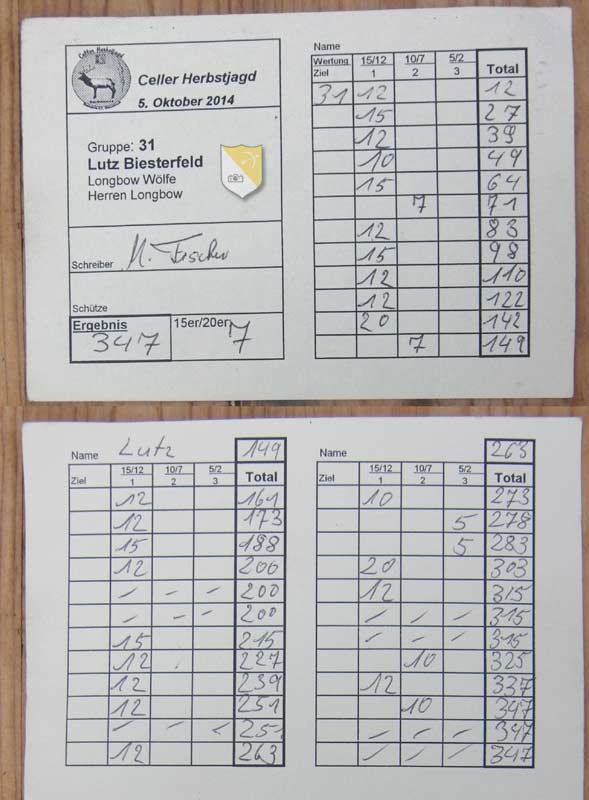 Celler Herbstjagd
Celler Herbstjagd
5. Oktober 2014
Gruppe: 31
Lutz Biesterfeld
Longbow Wölfe
Herren Longbow
Schreiber M. Fischer
Schütze
Ergebnis 15er/20er
347 7
Name
Wertung 15/12 10/7 5/2 Total
Ziel 1 2 3
31 12 12
15 27
12 39
10 49
15 64
7 71
12 83
15 98
12 110
12 122
20 142
7 149
Name Lutz 149
15/12 10/7 5/2 Total
Ziel 1 2 3
12 161
12 173
15 188
12 200
– – – 200
– – – 200
15 215
12 227
12 239
12 251
– – – 251
12 263
Name 263
15/12 10/7 5/2 Total
Ziel 1 2 3
10 273
5 278
5 283
20 303
12 315
– – – 315
– – – 315
10 325
12 337
10 347
– – – 347
– – – 347